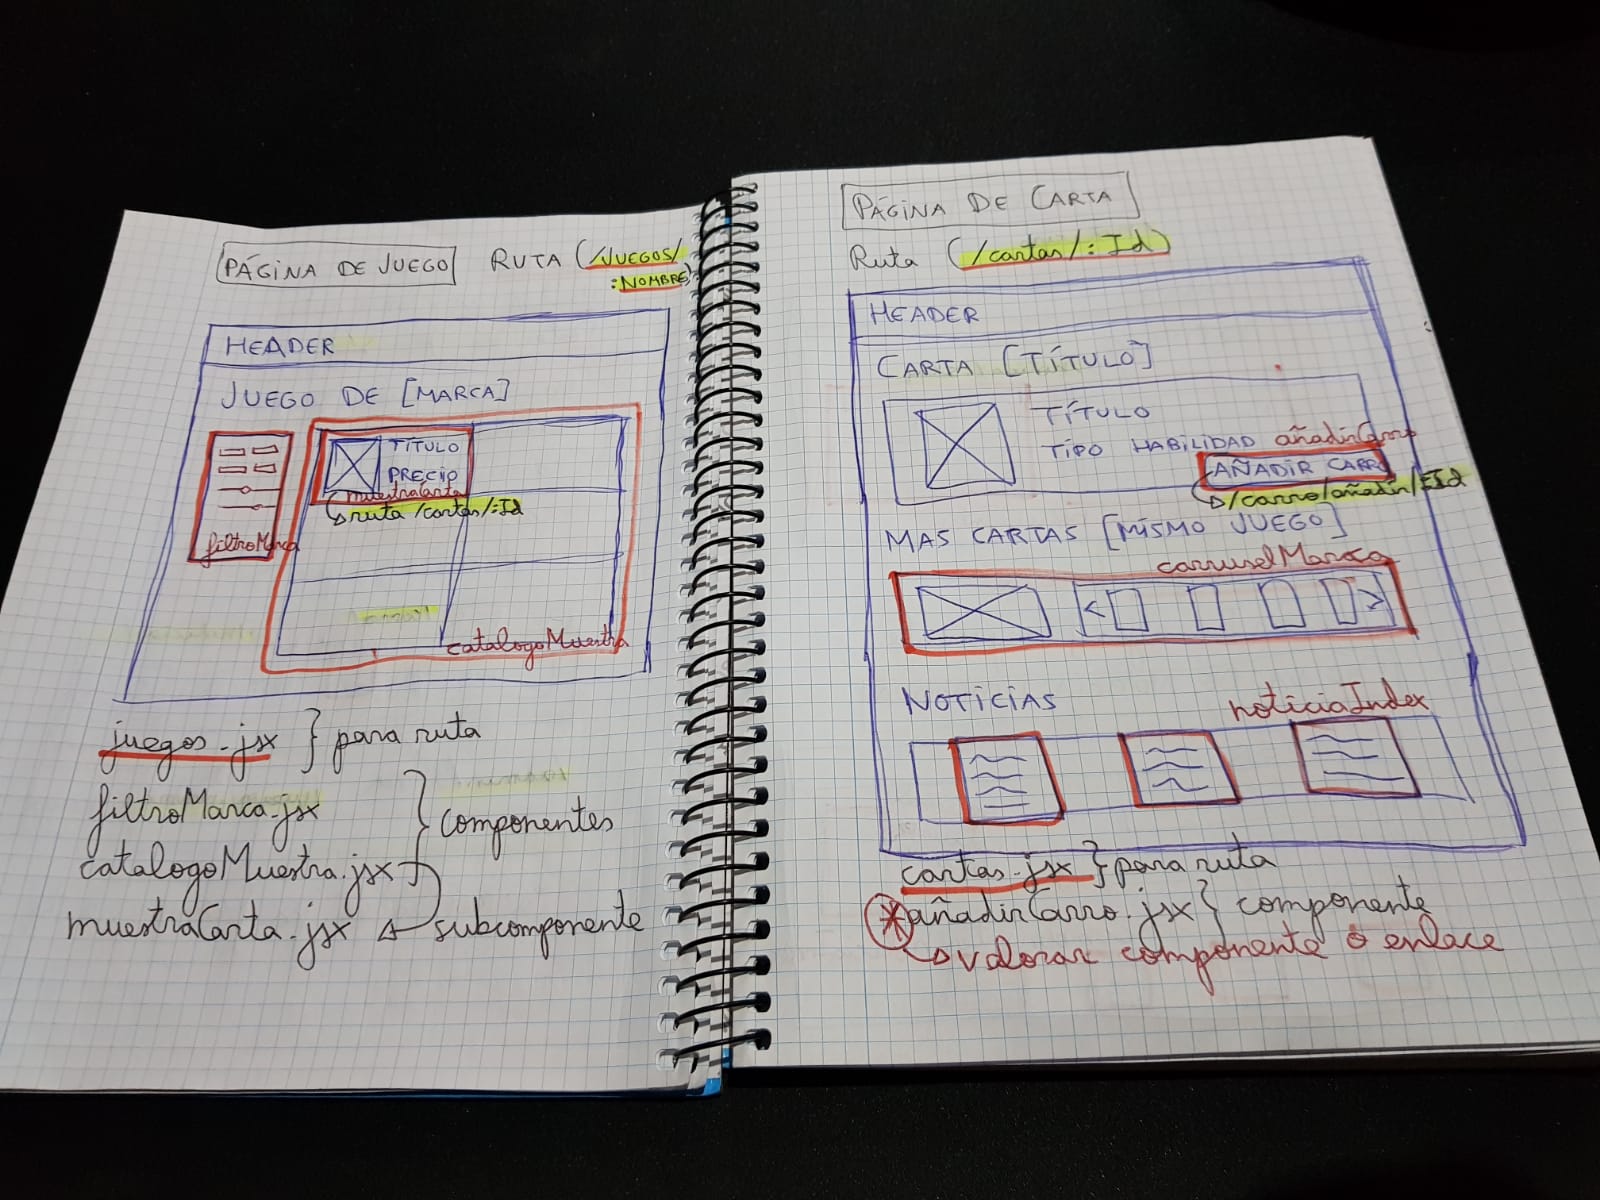 PÁGINA DE JUEGO
RUTA (/JUEGOS/
:NOMBRE)
HEADER
JUEGO DE [MARCA]
TÍTULO
PRECIO
muestraCarta
ruta /cartas/:Id
filtroMarca
catalogoMuestra
juegos.jsx } para ruta
filtroMarca.jsx
componentes
catalogoMuestra.jsx
muestraCarta.jsx
subcomponente
PÁGINA DE CARTA
Ruta (/cartas/:Id)
HEADER
CARTA [TÍTULO]
TÍTULO
TIPO HABILIDAD
añadirCarro
AÑADIR CARRO
/carro/añadir/:Id
MAS CARTAS [MISMO JUEGO]
carruselMarca
< >
NOTICIAS
noticiaIndex
cartas.jsx } para ruta
* añadirCarro.jsx } componente
valorar componente o enlace